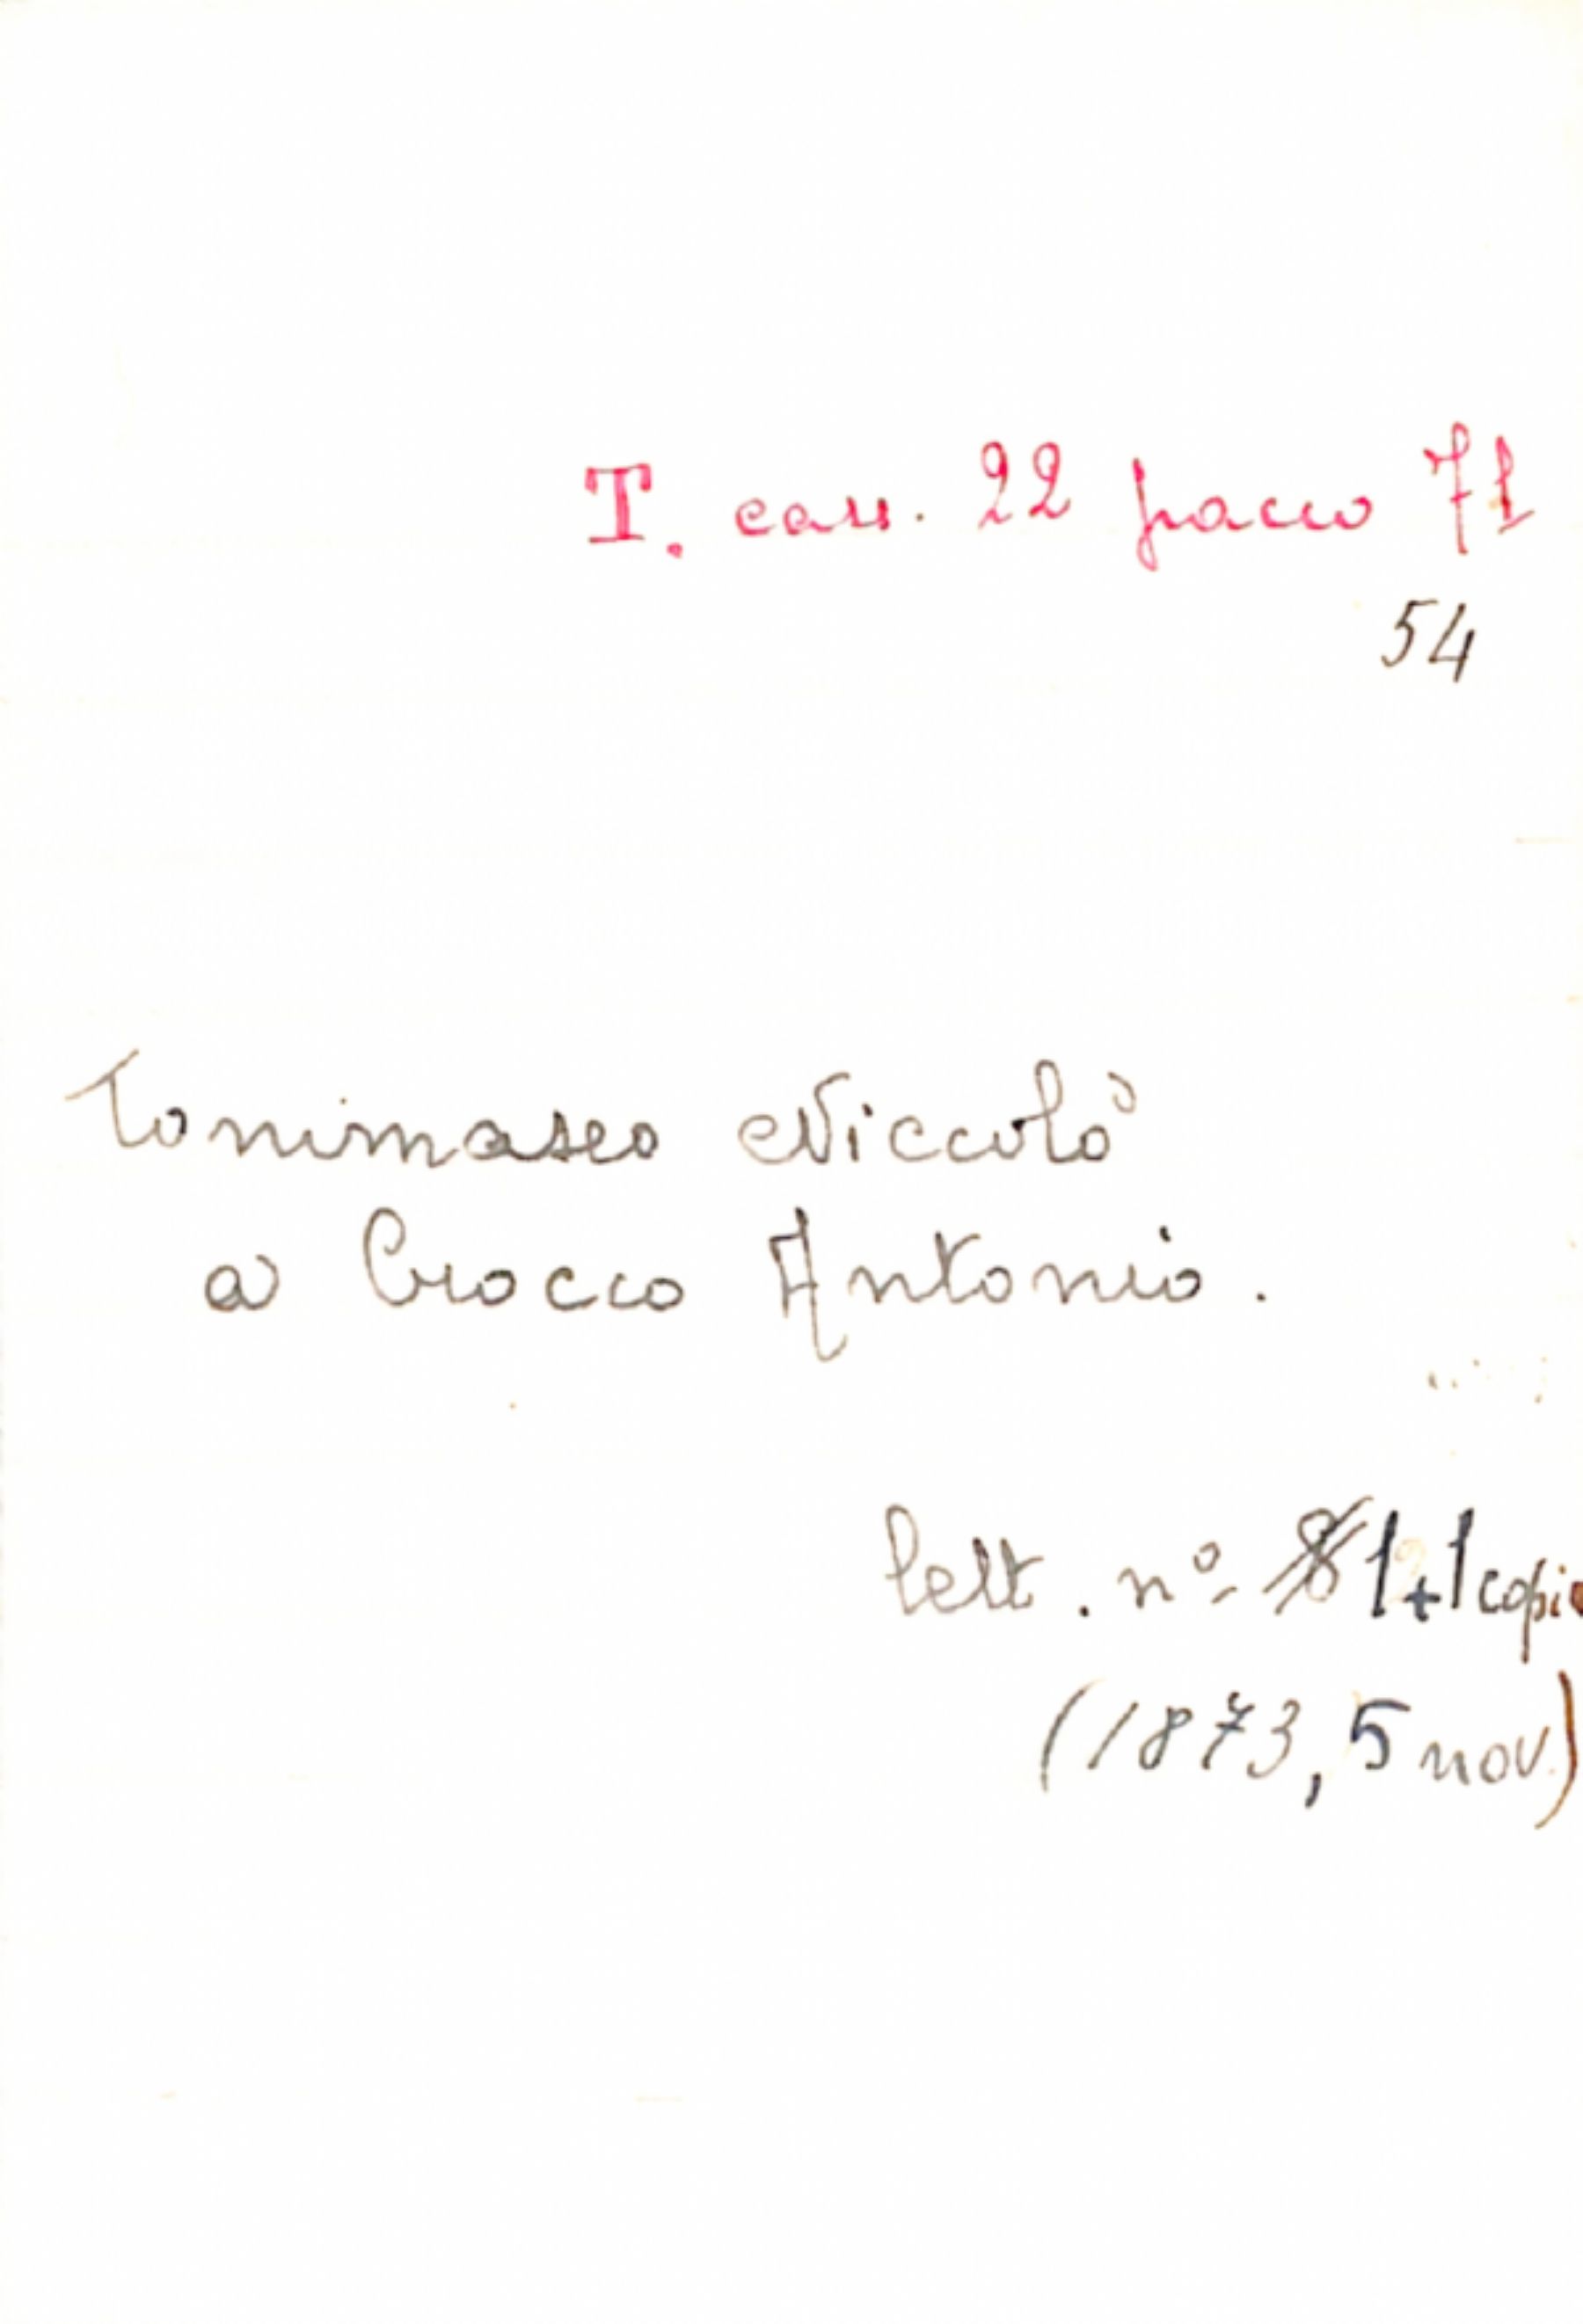 T. cass. 22 pacco 71
54
Tommaseo Niccolò
a Crocco Antonio.
lett. nº 1+1 copia
(1873, 5 nov.)